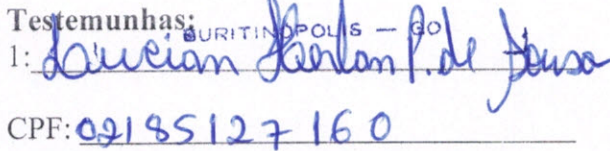 Testemunhas:
BURITINÓPOLIS – GO
1: Laucian Harlan P. de Sousa
CPF: 02185127160